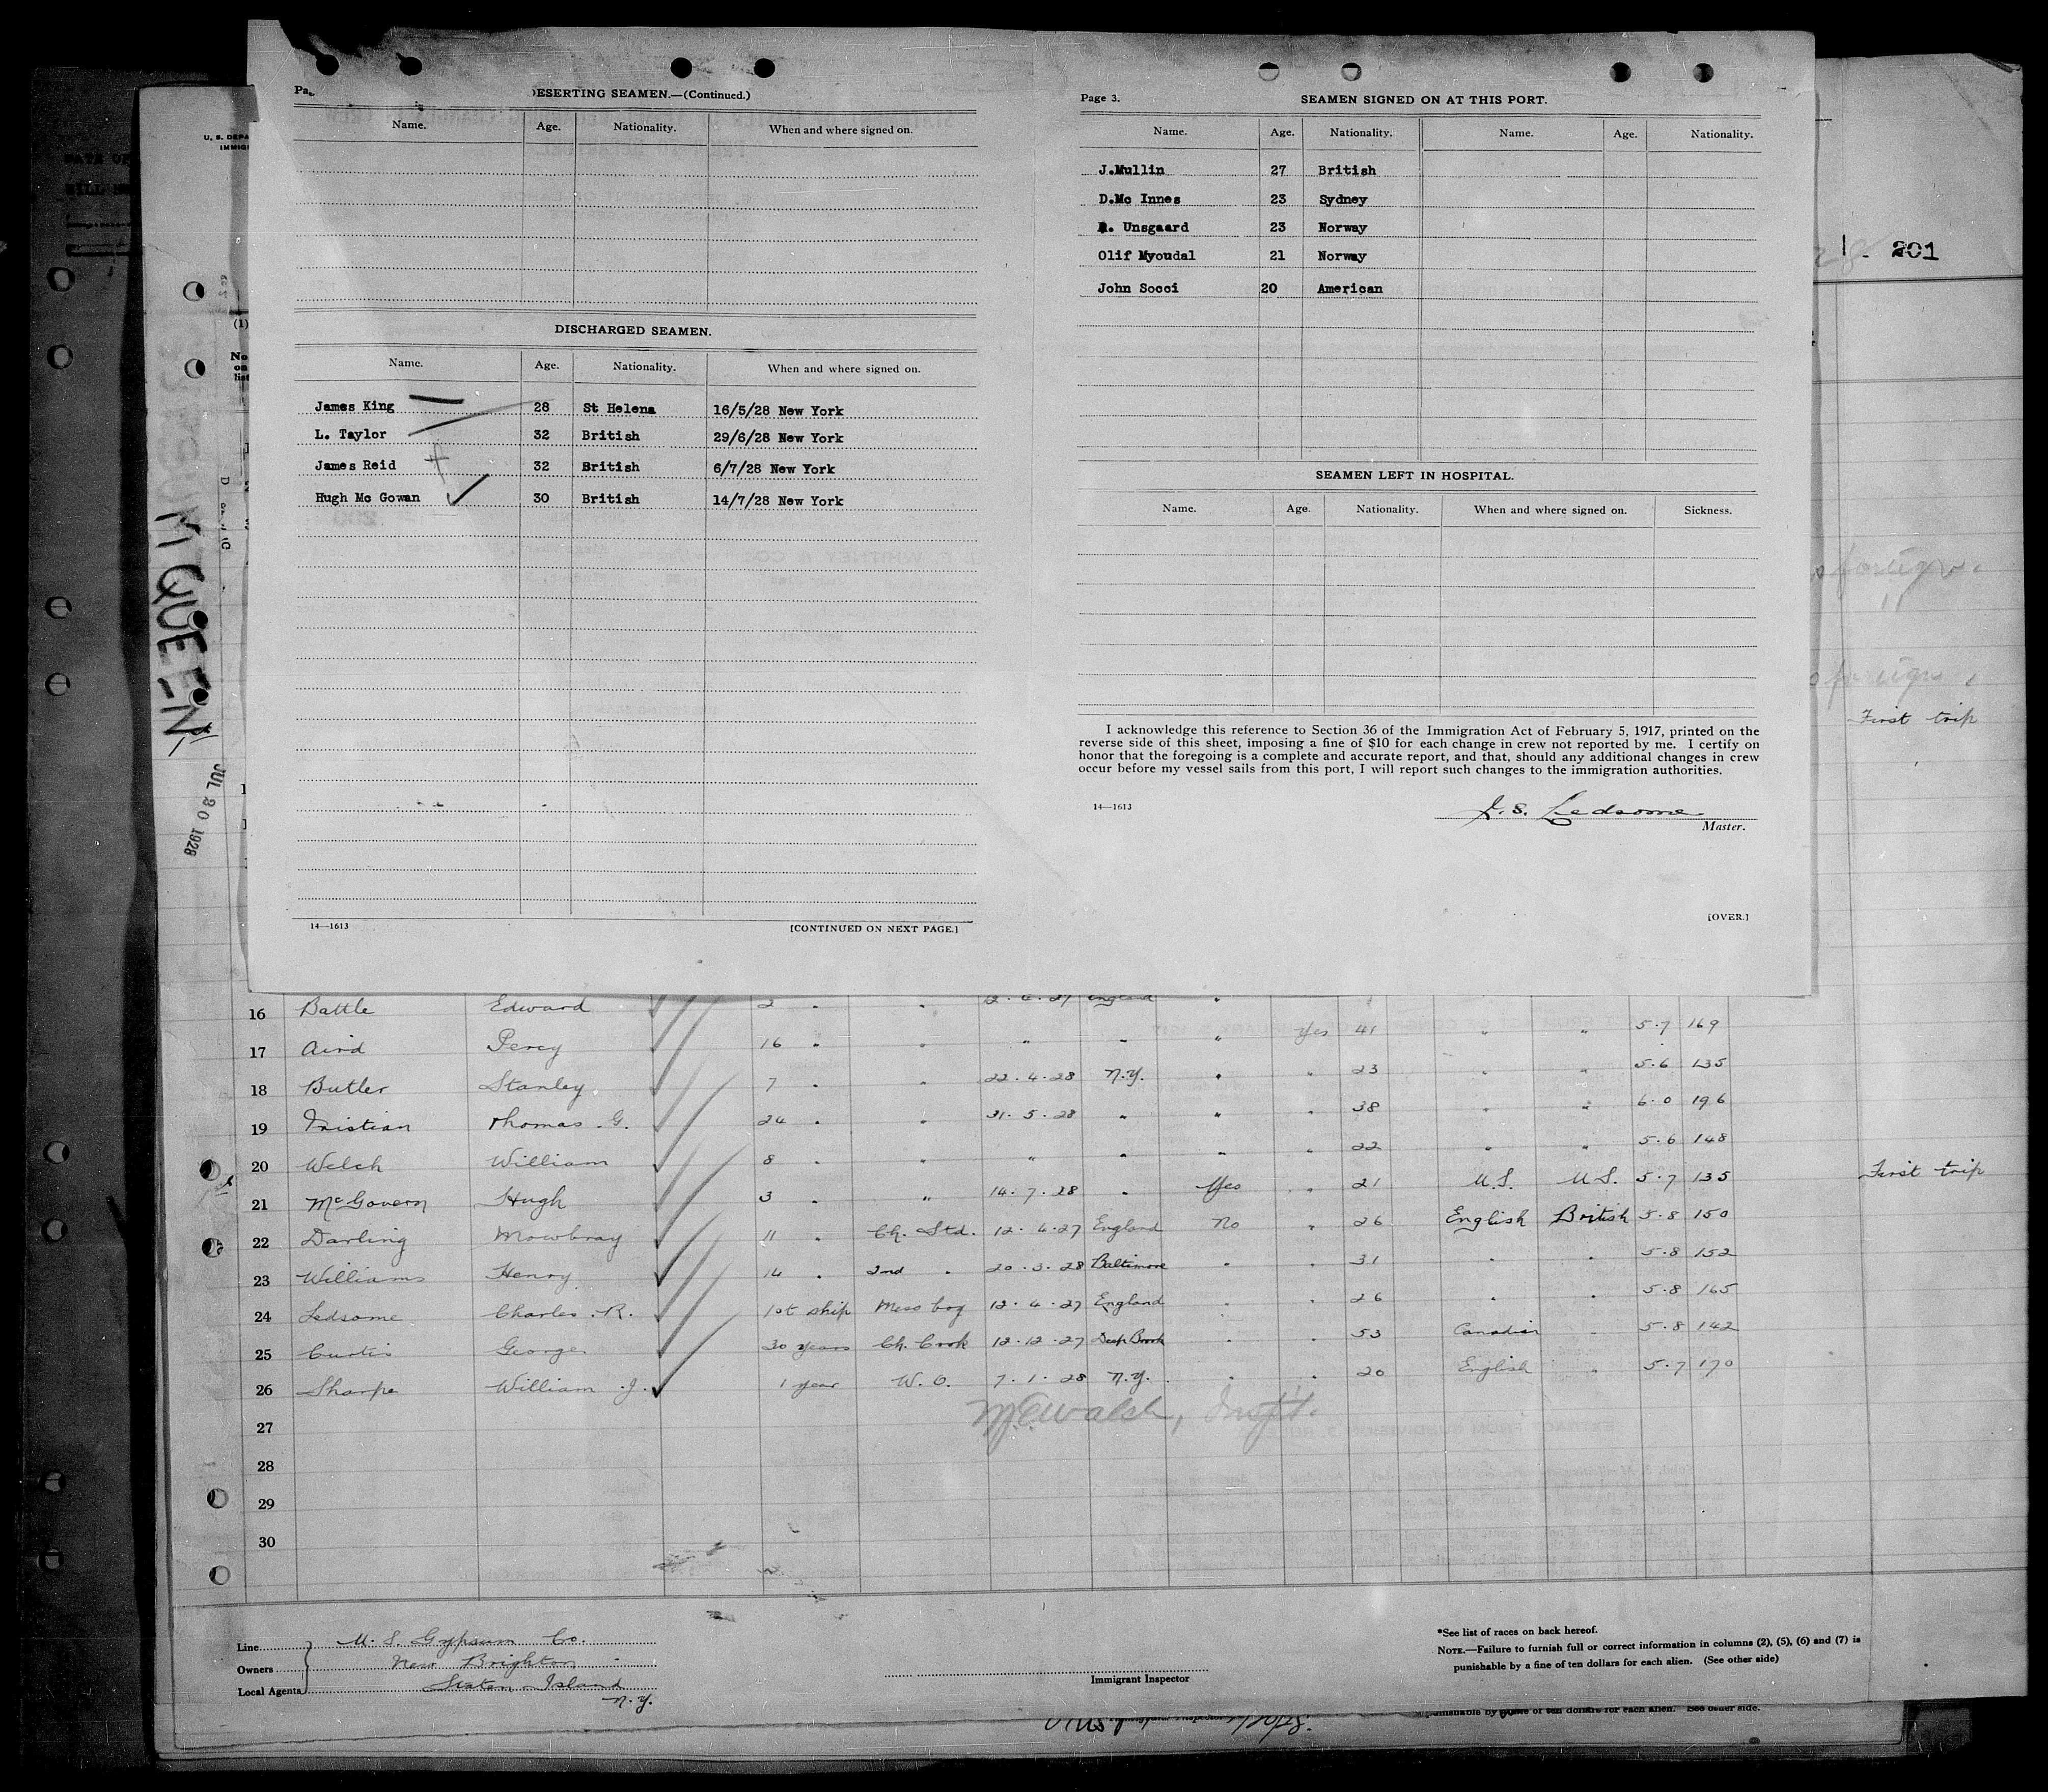 DESERTING SEAMEN.—(Continued.)
Name. Age. Nationality. When and where signed on.
DISCHARGED SEAMEN.
Name. Age. Nationality. When and where signed on.
James King 28 St Helena 16/5/28 New York
L. Taylor 32 British 29/6/28 New York
James Reid 32 British 6/7/28 New York
Hugh Mc Gowan 30 British 14/7/28 New York
14—1613 [CONTINUED ON NEXT PAGE.]
Page 3. SEAMEN SIGNED ON AT THIS PORT.
Name. Age. Nationality. Name. Age. Nationality.
J.Mullin 27 British
D.Mc Innes 23 Sydney
Unsgaard 23 Norway
Olif Myoudal 21 Norway
John Socci 20 American
SEAMEN LEFT IN HOSPITAL.
Name. Age. Nationality. When and where signed on. Sickness.
I acknowledge this reference to Section 36 of the Immigration Act of February 5, 1917, printed on the
reverse side of this sheet, imposing a fine of $10 for each change in crew not reported by me. I certify on
honor that the foregoing is a complete and accurate report, and that, should any additional changes in crew
occur before my vessel sails from this port, I will report such changes to the immigration authorities.
14—1613 J. S. Ledsome
Master.
[OVER.]
201
(1)
No
on
list
QUEEN
JUL 20 1928
foreign.
foreign
First trip
16 Battle Edward 2 " " 12.4.27 England "
17 Aird Percy 16 " " " " " Yes 41 " " 5.7 169
18 Butler Stanley 7 " " 22.4.28 N.Y. " " 23 " " 5.6 135
19 Tristian Thomas G. 24 " " 31.5.28 " " " 38 " " 6.0 196
20 Welch William 8 " " " " " " 22 " " 5.6 148
21 McGovern Hugh 3 " " 14.7.28 " Yes " 21 U.S. U.S. 5.7 135 First trip
22 Darling Mowbray 11 " Ch. Std. 12.4.27 England No " 26 English British 5.8 150
23 Williams Henry 14 " 2nd " 20.3.28 Baltimore " " 31 " " 5.8 152
24 Ledsome Charles R. 1st ship Mess boy 12.4.27 England " " 26 " " 5.8 165
25 Curtis George 30 years Ch. Cook 12.12.27 Deep Brook " " 53 Canadian " 5.8 142
26 Sharpe William J. 1 year W. O. 7.1.28 N.Y. " " 20 English " 5.7 170
27
28
29
30
Line U.S. Gypsum Co.
Owners New Brighton
Local Agents Staten Island
N.Y.
Immigrant Inspector
*See list of races on back hereof.
NOTE.—Failure to furnish full or correct information in columns (2), (5), (6) and (7) is
punishable by a fine of ten dollars for each alien. (See other side)
of ten dollars for each alien. See other side.